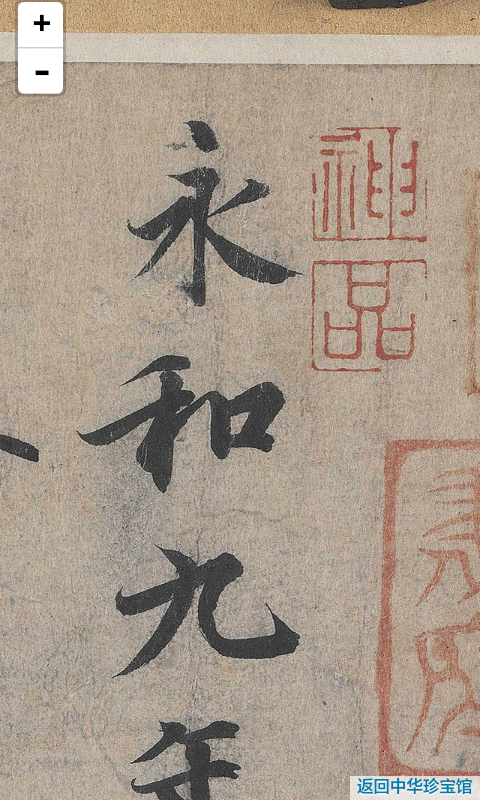 永和九年
神
品
返回中华珍宝馆